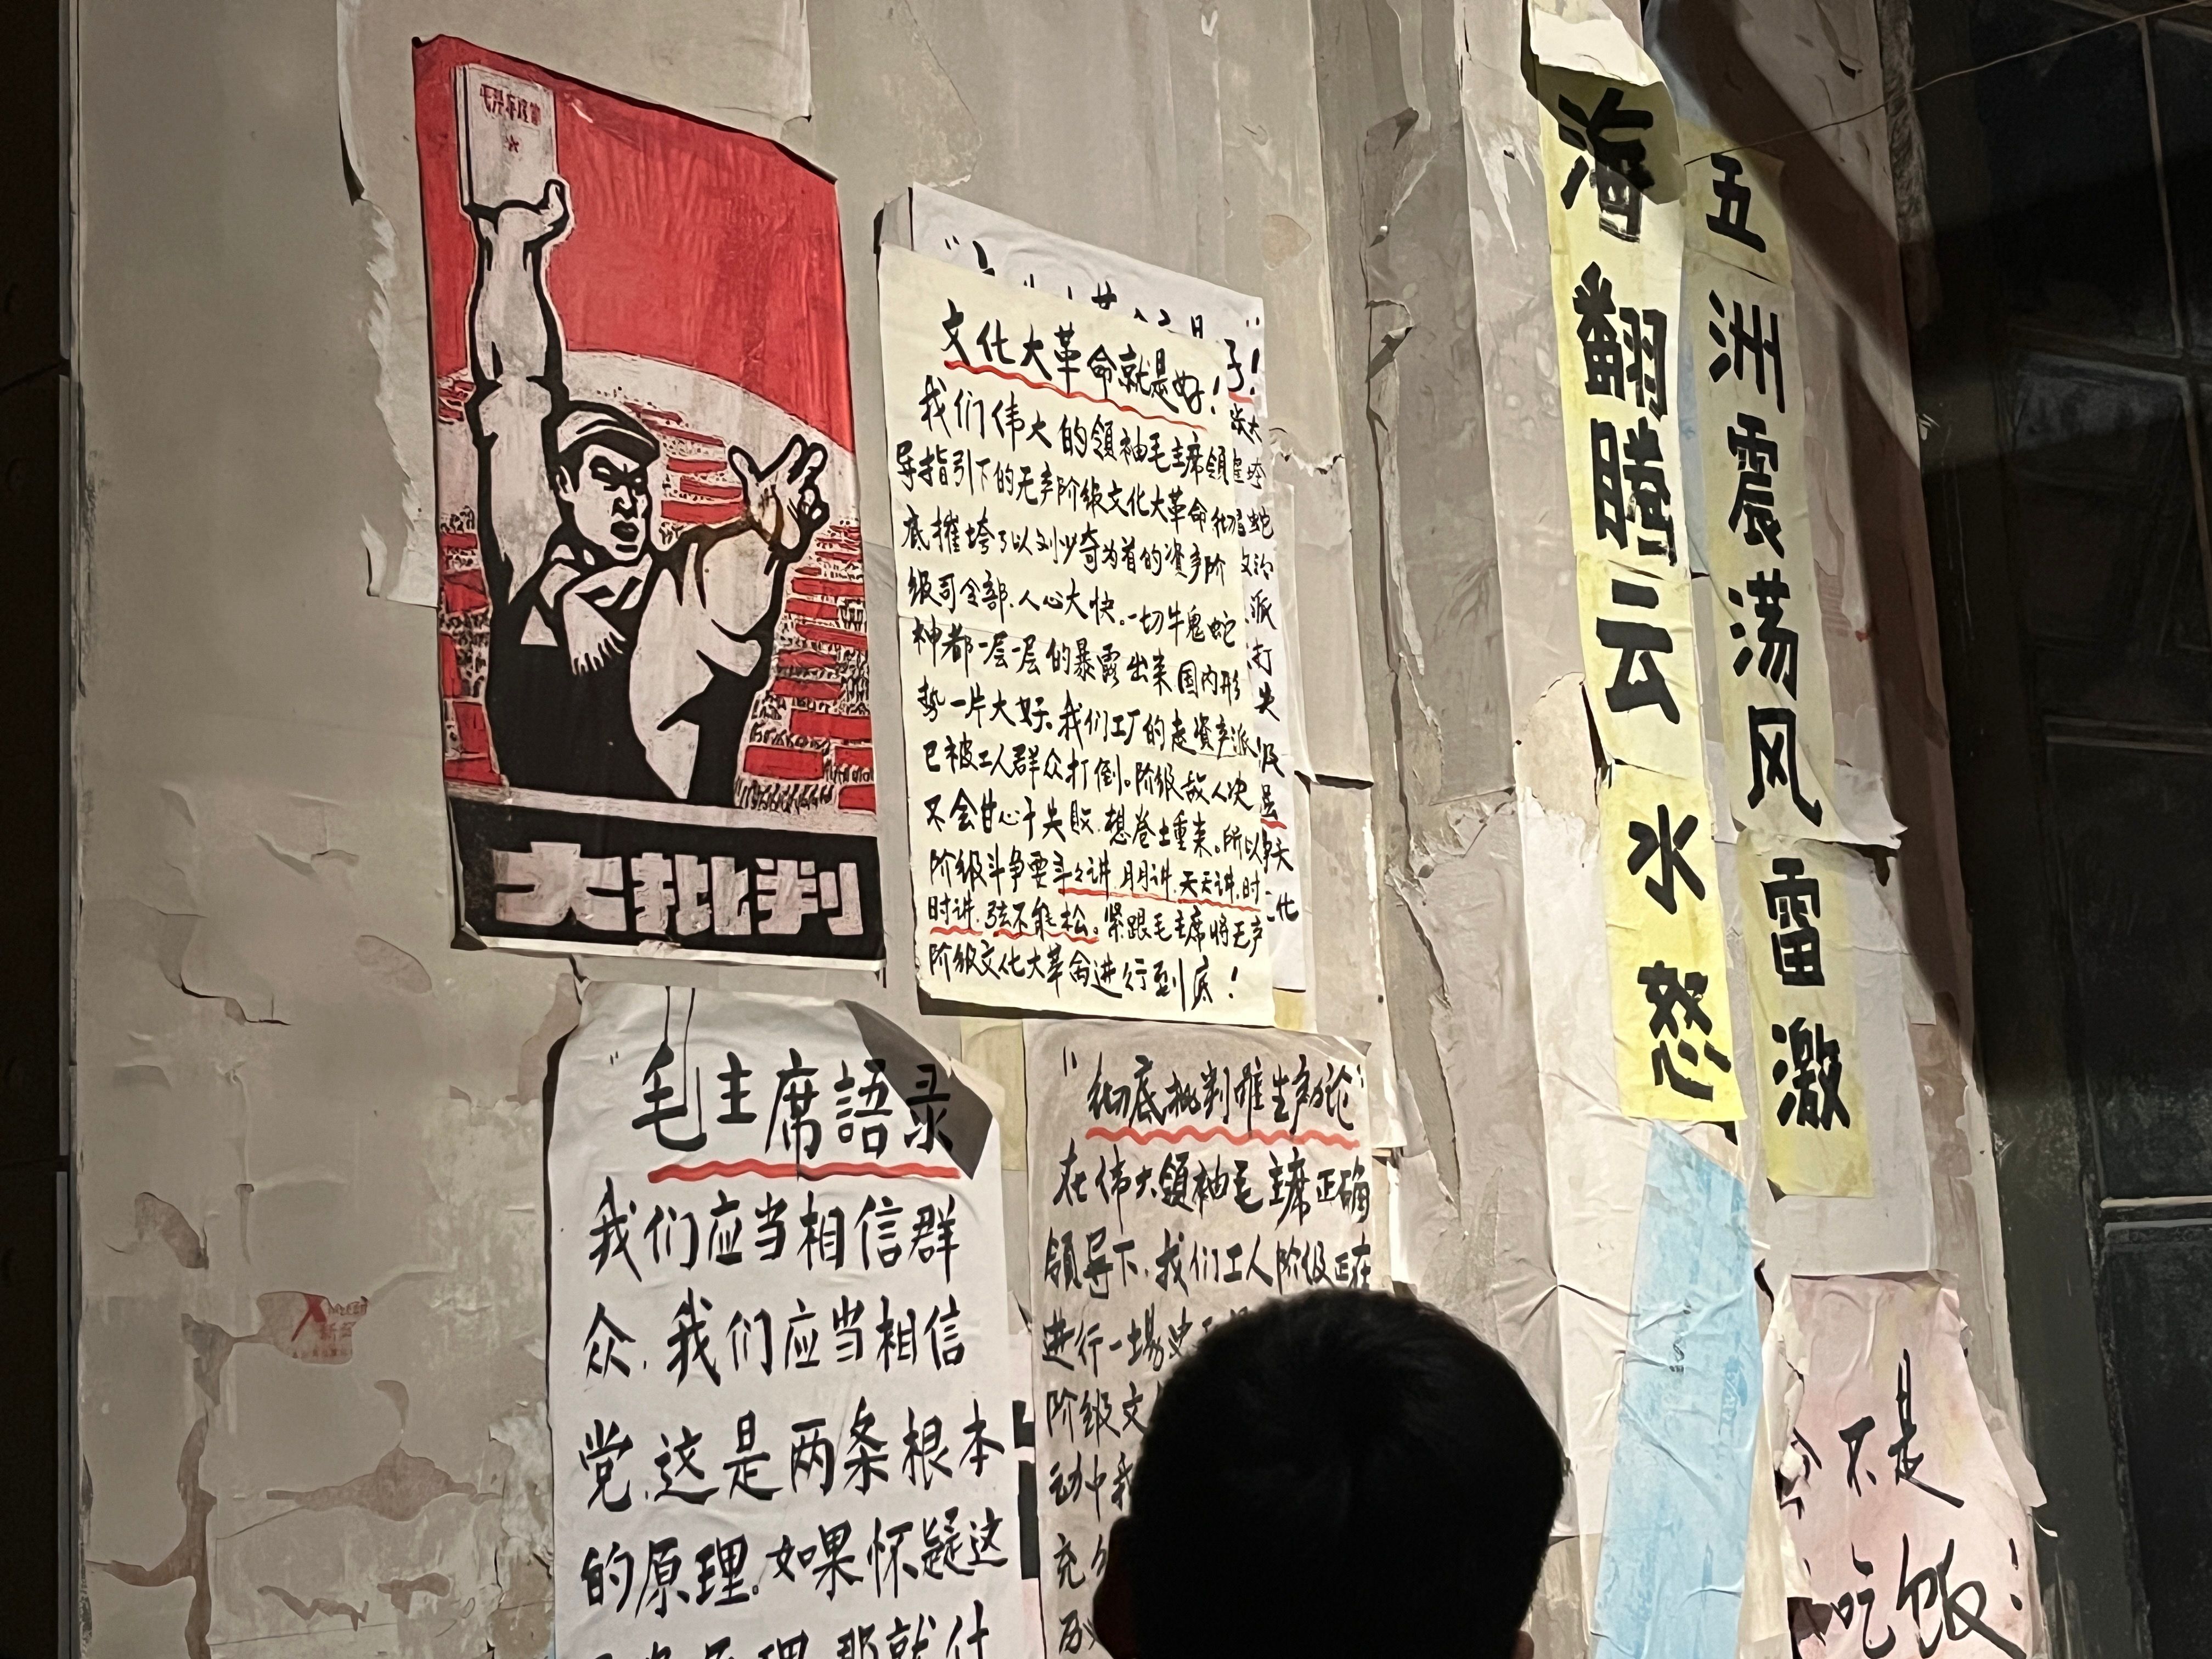 大批判
文化大革命就是好！
我们伟大的領袖毛主席領
导指引下的无产阶级文化大革命彻
底摧垮了以刘少奇为首的資产阶
级司令部、人心大快。一切牛鬼蛇
神都一层一层的暴露出来国内形
势一片大好。我们工厂的走資产派
已被工人群众打倒。阶级敌人决
不会甘心于失败、想卷土重来。所以
阶级斗争要年々讲、月月讲、天天讲、时
时讲、弦不能松。紧跟毛主席将无产
阶级文化大革命进行到底！
"毛主席語录
我们应当相信群
众、我们应当相信
党、这是两条根本
的原理。如果怀疑这
"彻底批判唯生产力论"
在伟大領袖毛主席正确
領导下、我们工人阶级正在
进行一場史
阶级文
动中我
充分
海翻腾云水怒
五洲震荡风雷激
不是
吃饭！